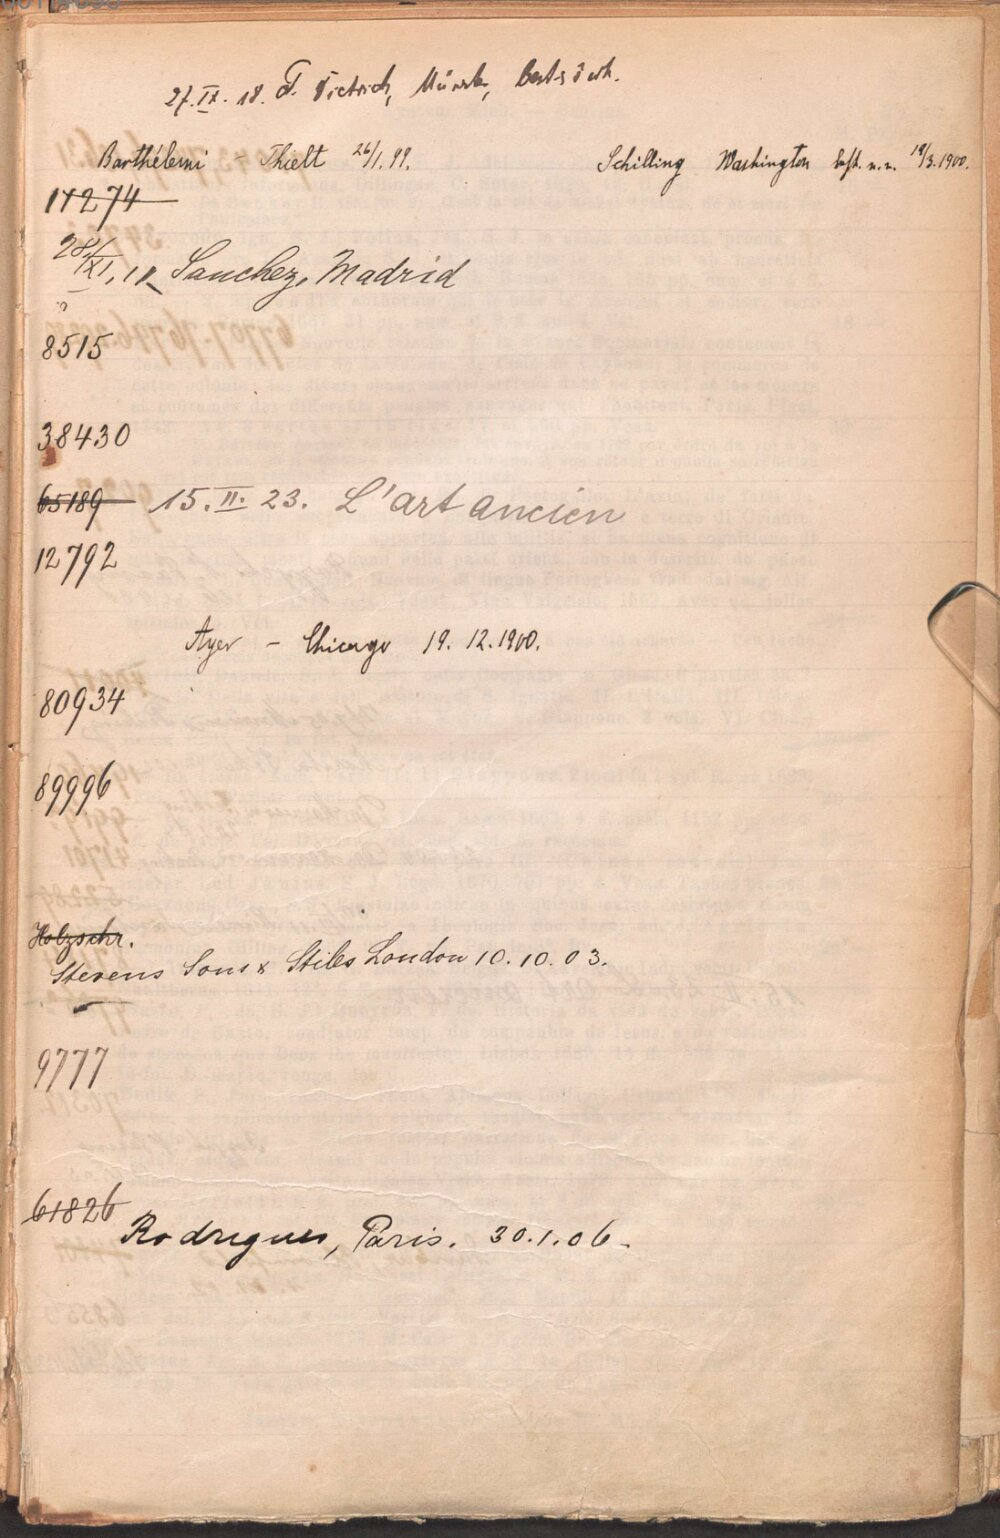 27.IX.18. F. Dietrich, Münch,
Barthélemi - Thielt 26/1.99. Schilling Washington best. n. n. 19/3.1900.
17274
28/XI.18 Sanchez, Madrid
8515
38430
65189 15.II.23. L'art ancien
12792
Ayer - Chicago 19.12.1900.
80934
89996
Holzschr.
Stevens Sons & Stiles London 10.10.03.
9777
61826
Rodrigues, Paris. 30.1.06.